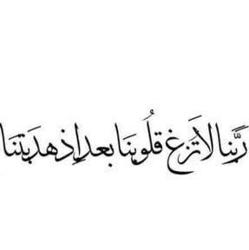 رَبَّنَا لَا تُزِغْ قُلُوبَنَا بَعْدَ إِذْ هَدَيْتَنَا